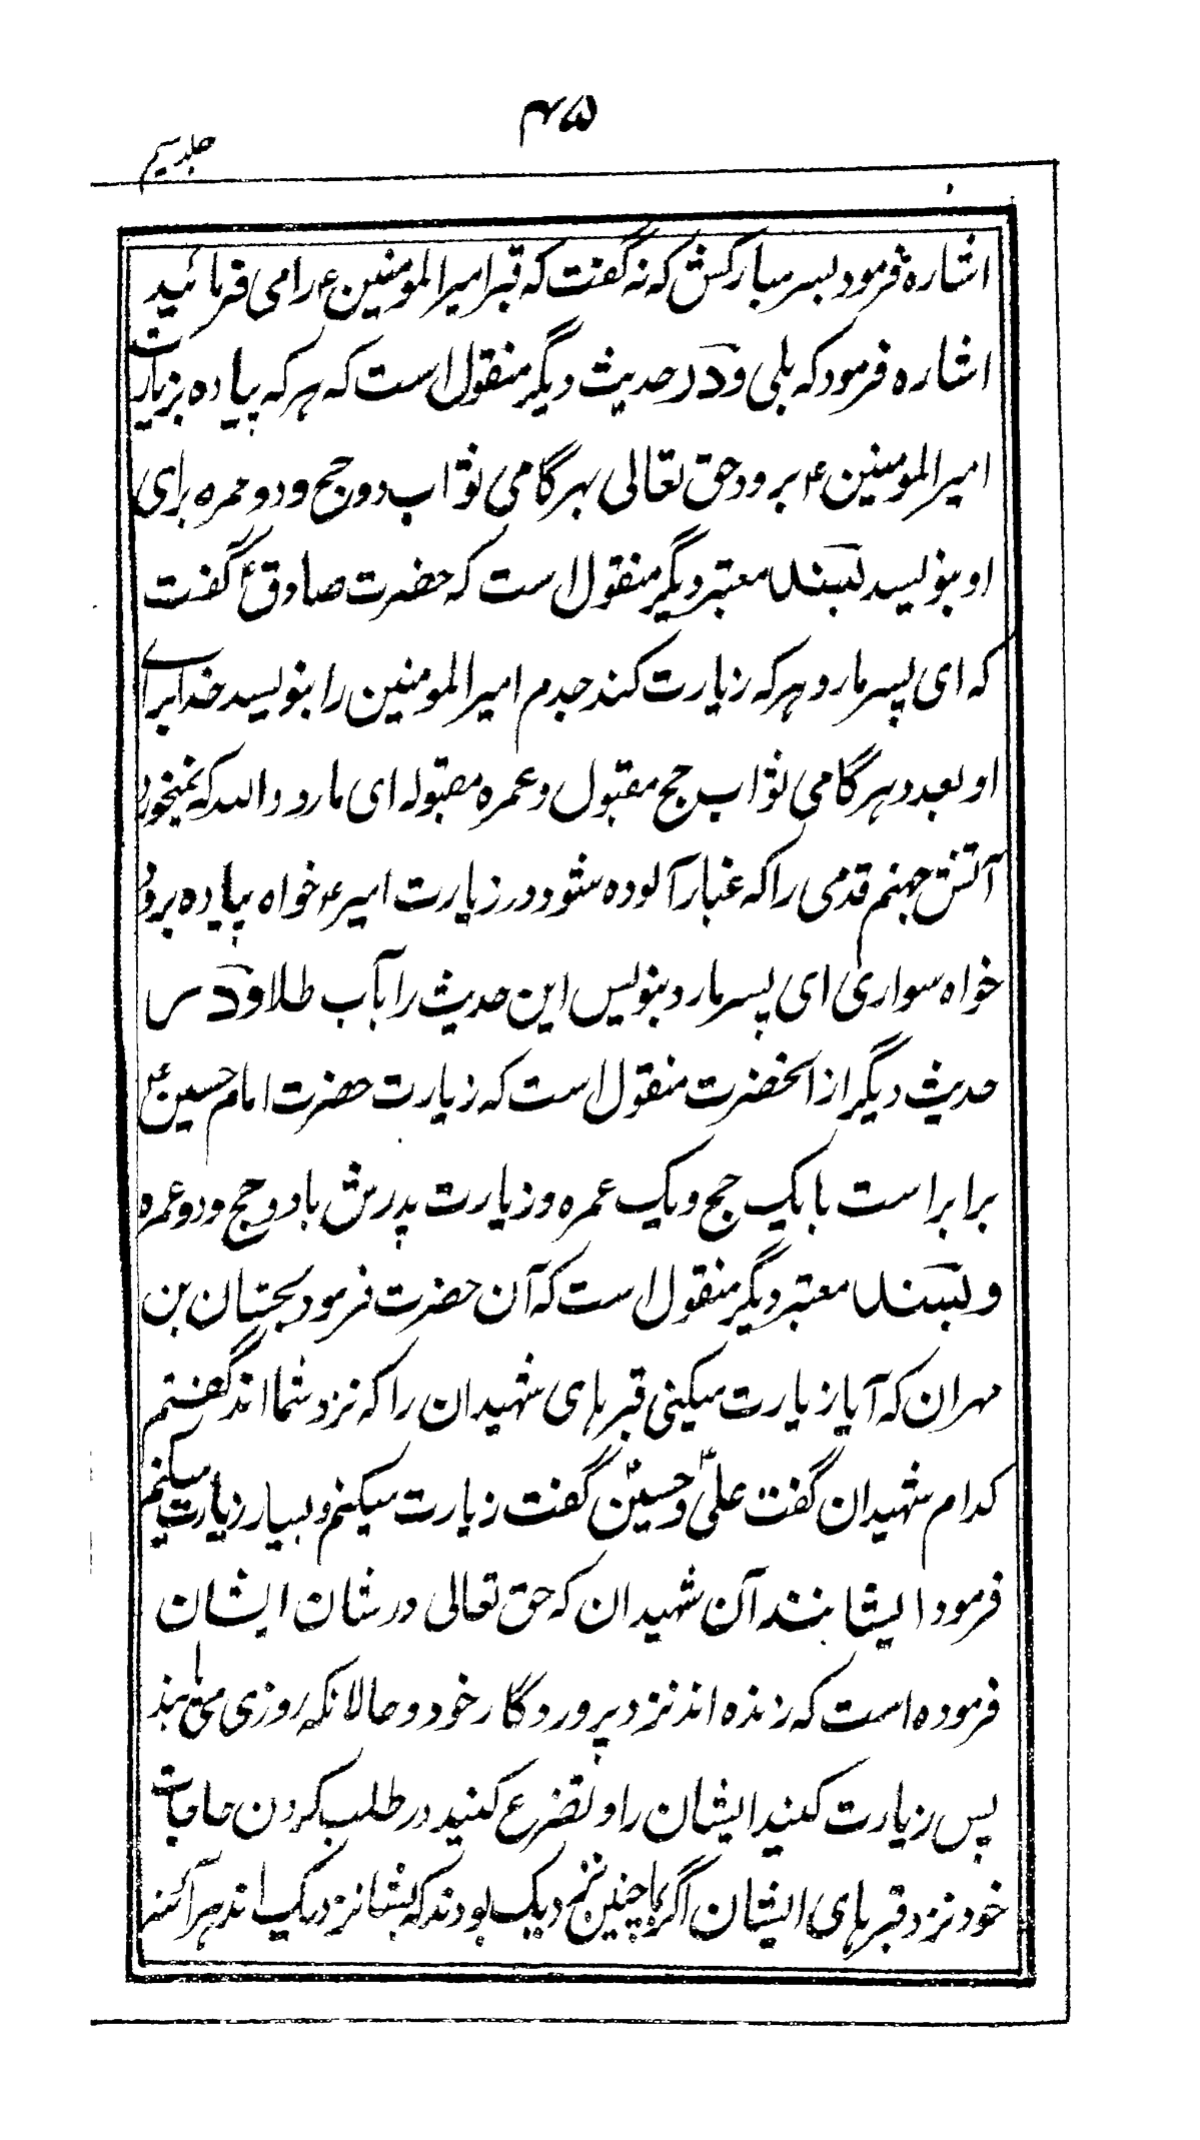 ۴۵
جلد سیم
اشاره فرمود بسر مبارکش که نه گفت که قبر امیرالمومنین ع را می فرمائید
اشاره فرمود که بلی و در حدیث دیگر منقول است که هر که پیاده بزیارت
امیرالمومنین ع برود حق تعالی بهر گامی ثواب دو حج و دو عمره برای
او بنویسد بسند معتبر دیگر منقول است که حضرت صادق ع گفت
که ای پسر مارد هر که زیارت کند جدم امیرالمومنین را بنویسد خدا برای
او بعدد هر گامی ثواب حج مقبول و عمره مقبوله ای مارد والله که نمیخورد
آتش جهنم قدمی را که غبار آلوده شود در زیارت امیر ع خواه پیاده برود
خواه سواری ای پسر مارد بنویس این حدیث را بآب طلا و در
حدیث دیگر از انحضرت منقول است که زیارت حضرت امام حسین ع
برابر است با یک حج و یک عمره و زیارت پدرش با دو حج و دو عمره
و بسند معتبر دیگر منقول است که آن حضرت فرمود بحسان بن
مهران که آیا زیارت میکنی قبر های شهیدان را که نزد شما اند گفتم
کدام شهیدان گفت علی و حسین گفت زیارت میکنم و بسیار زیارت میکنم
فرمود ایشانند آن شهیدان که حق تعالی در شان ایشان
فرموده است که زنده اند نزد پرورد گار خود و حالانکه روزی می یابند
پس زیارت کنید ایشان را و تضرع کنید در طلب کردن حاجات
خود نزد قبر های ایشان اگر بما چنین نزدیک بودند که بشما نزدیک اند هر آئنه